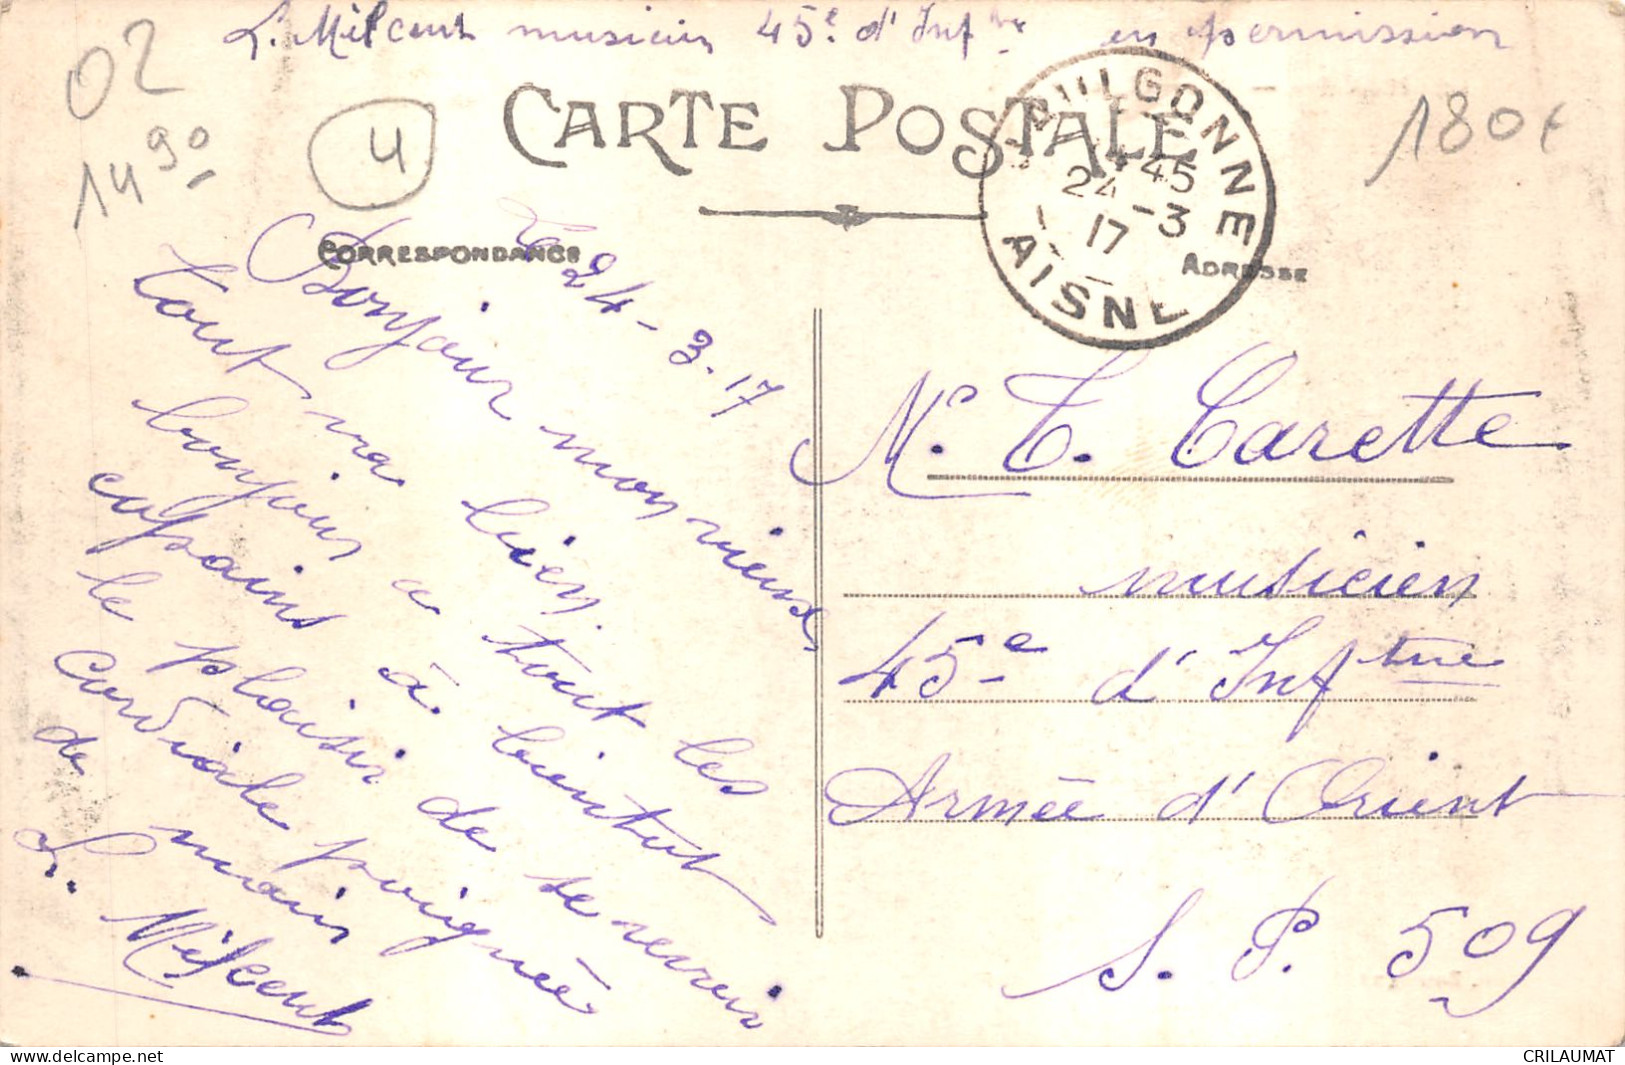 L. Milcent musicien 45e d'Inftrie en permission
02
1490
4
180€
CARTE POSTALE
JOUILGONNE
1445
24-3
17
AISNE
CORRESPONDANCE
ADRESSE
Le 24-3-17
Bonjour mon vieux
tout va bien.
bonjour a tout les
copains à bientot
le plaisir de se revoir
Cordiale poignée
de main
L. Milcent
Mr T. Carette
musicien
45e d'Inftrie
Armée d'Orient
S. P. 509
CRILAUMAT